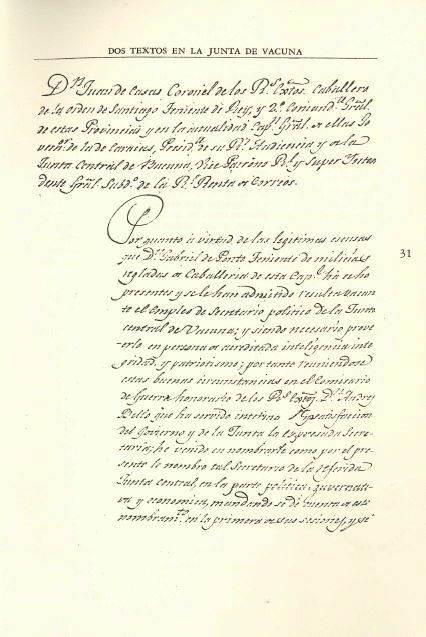 DOS TEXTOS EN LA JUNTA DE VACUNA
Dn. Juan de Casas Coronel de los Rs. Extos. Caballero
de la orden de Santiago Teniente de Rey, y 2o. Comandte. Grâl.
de estas Provincias y en la actualidad Capn. Grâl. de ellas Go
vernor. de la de Caracas, Presidte. de su Rl. Audiencia y de la
Junta Central de Vacuna, Vice Patrono Rl. y Super Inten
dente Grâl. Subdo. de la Rl. Renta de Correos.
Por quanto à virtud de las legitimas escusas
que Dn. Gabriel de Ponte Teniente de milicias
regladas de Caballeria de esta Capl. ha echo
presentes y se le han admitido resulta vacan
te el empleo de Secretario politico de la Junta
central de Vacuna; y siendo necesario prove
erlo en persona de acreditada inteligencia inte
gridad, y patriotismo; por tanto reuniendose
estas buenas circunstancias en el Comisario
de Guerra honorario de los Rs. Extos. Dn. Andres
Bello que ha servido satisfaccion
del Govierno y de la Junta la expresada Secre-
taria; he venido en nombrarle como por el pre-
sente le nombro tal Secretario de la referida
Junta central, en la parte politica, guvernati-
va y economica, mandando se dé cuenta de este
nombramto. en la primera de sus sesiones, y se
31